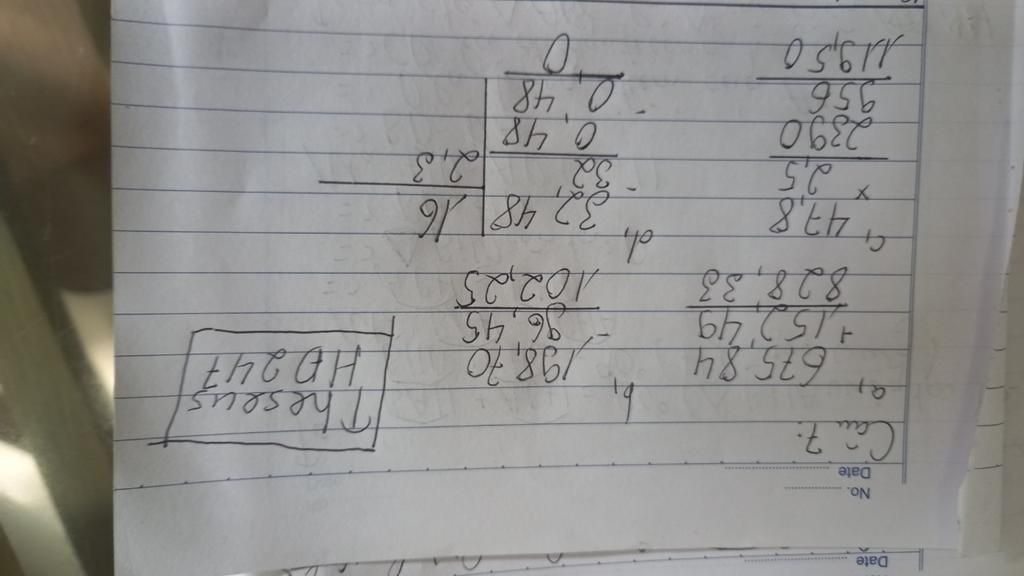 Date
No.
Date
Câu 7:
Theseus
HD247
a,
675,84
+ 152,49
828,33
b,
198,70
- 96,45
102,25
c,
47,8
x 2,5
2390
956
119,50
d,
32,48
16
- 32
2,3
0,48
- 0,48
0